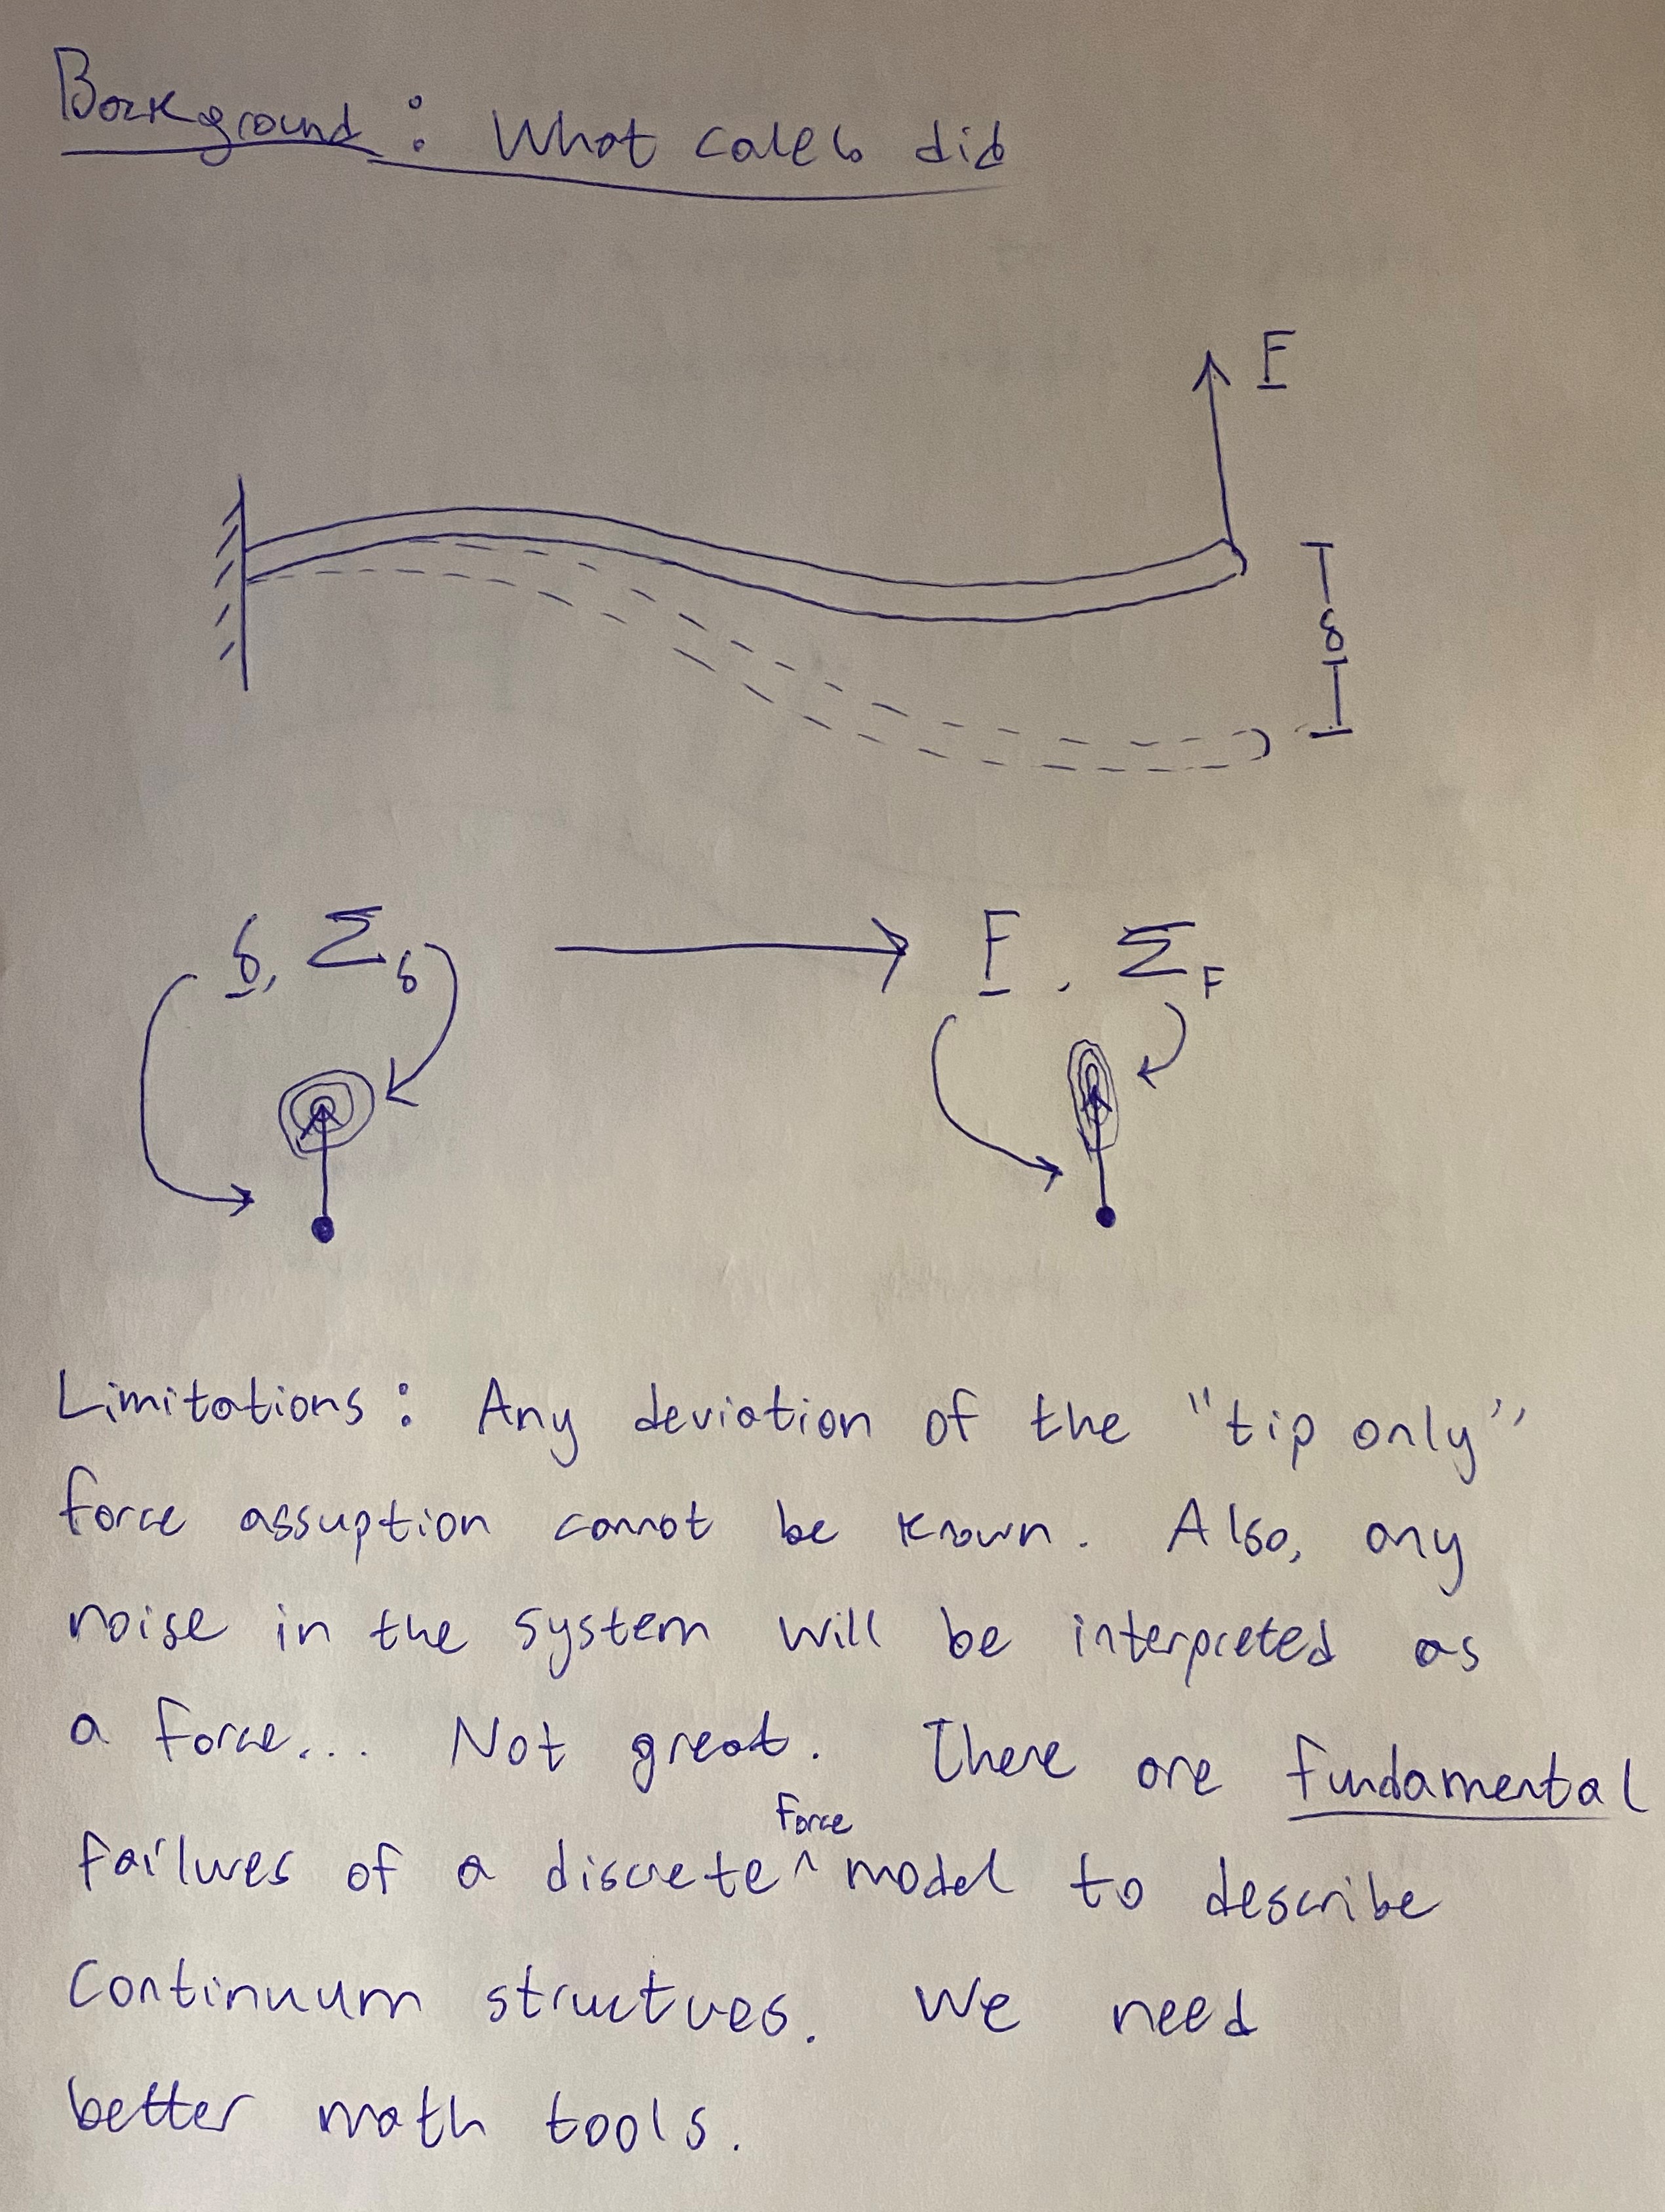 Background: What Caleb did
F
δ
δ, Σδ → F, ΣF
Limitations: Any deviation of the "tip only"
force assuption cannot be known. Also, any
noise in the system will be interpreted as
a force... Not great. There are fundamental
Force
failures of a discrete ^ model to describe
Continuum structues. We need
better math tools.